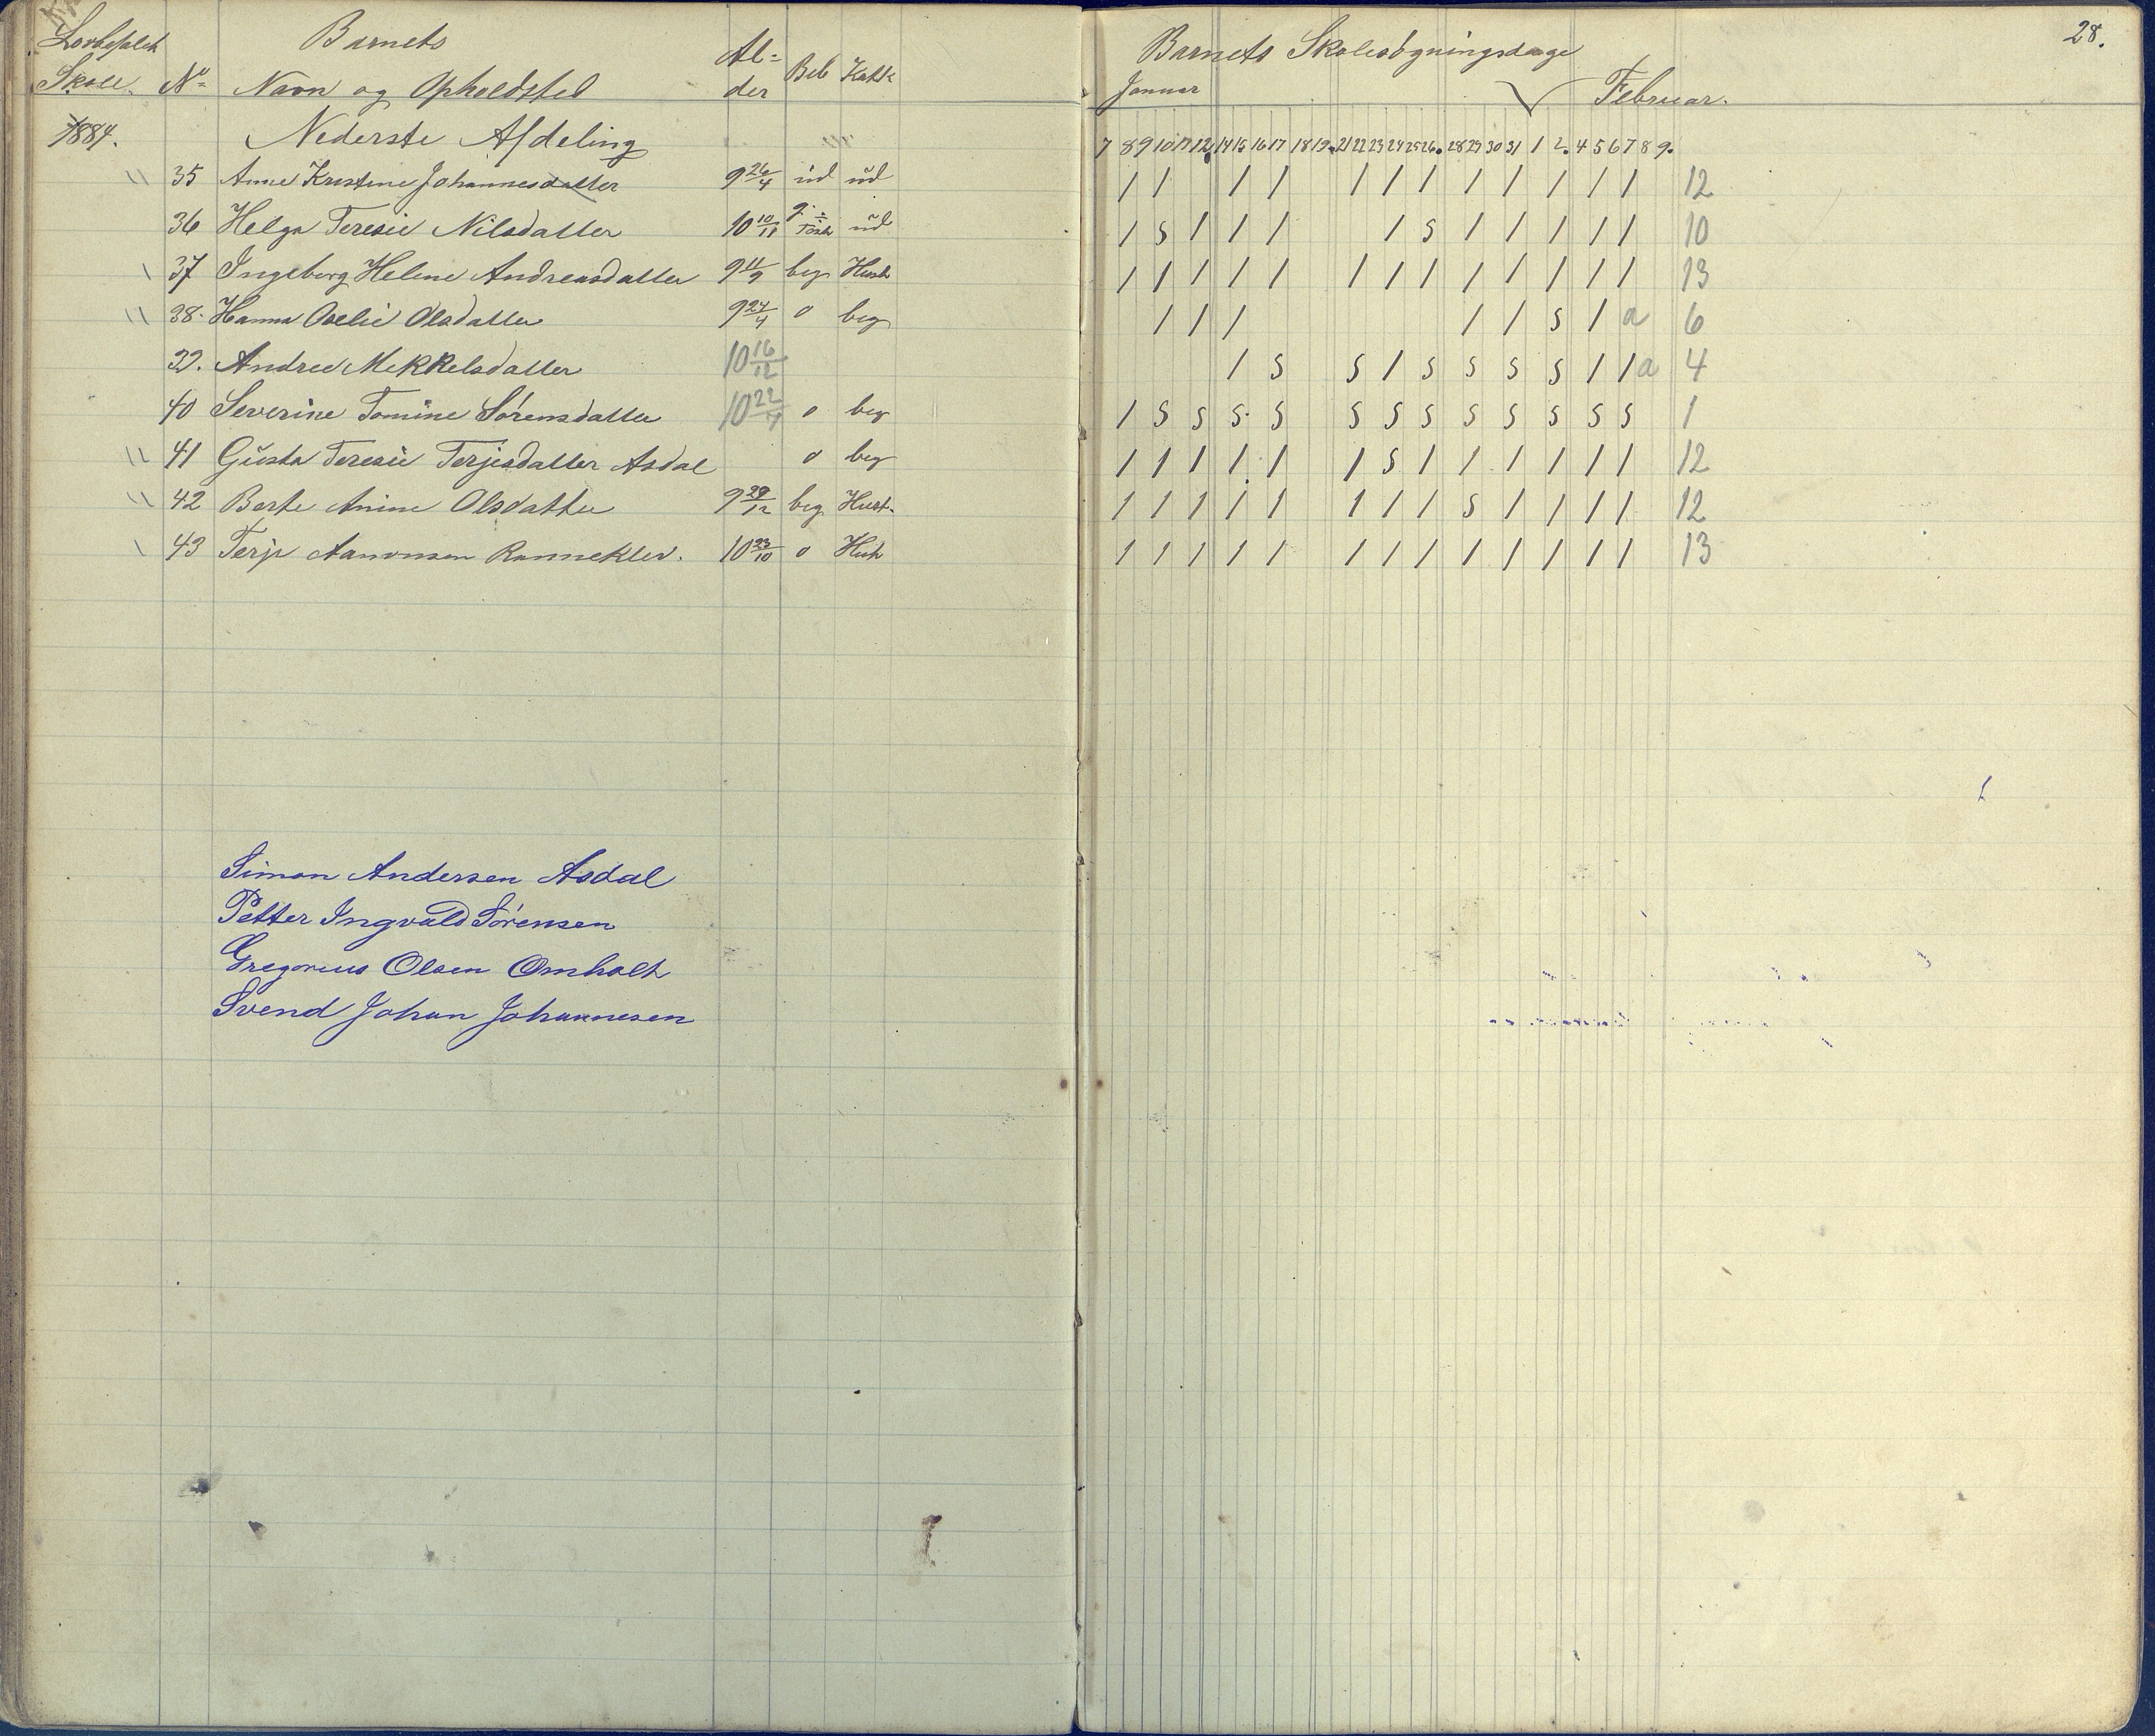 28.
Lovbefalet Barnets Al- Barnets Skolesøgningsdage
Skole. No Navn og Opholdsted der Bib Katk Januar Februar.
1884. Nederste Afdeling 7 8 9 10 11 12 14 15 16 17 18 19 21 22 23 24 25 26 28 29 30 31 1 2 4 5 6 7 8 9
" 35 Anne Kristine Johannesdatter 9 26/4 ud ud / / / / / / / / / / / / 12
36 Helga Teresie Nilsdatter 10 10/11 ud / s / / / / s / / / / / 10
\ 37 Ingeborg Helene Andreasdatter 9 11/9 beg Hust / / / / / / / / / / / / / 13
" 38. Hanna Oselie Olsdatter 9 24/4 o beg / / / / / s / a 6
39. Andrea Mekkelsdatter 10 16/12 / s s / s s s s / / a 4
40 Severine Tomine Sørensdatter 10 22/4 o beg / s s s s s s s s s s s s 1
" 41 Gusta Teresie Terjesdatter Asdal o beg / / / / / / s / / / / / / 12
" 42 Berte Anine Olsdatter 9 29/12 beg Hust. / / / / / / / / s / / / / 12
\ 43 Terje Aanonsen Ranneklev. 10 23/10 o Hust / / / / / / / / / / / / / 13
Simon Andersen Asdal
Petter Ingvald Sørensen
Gregorius Olsen Omholt
Svend Johan Johannesen